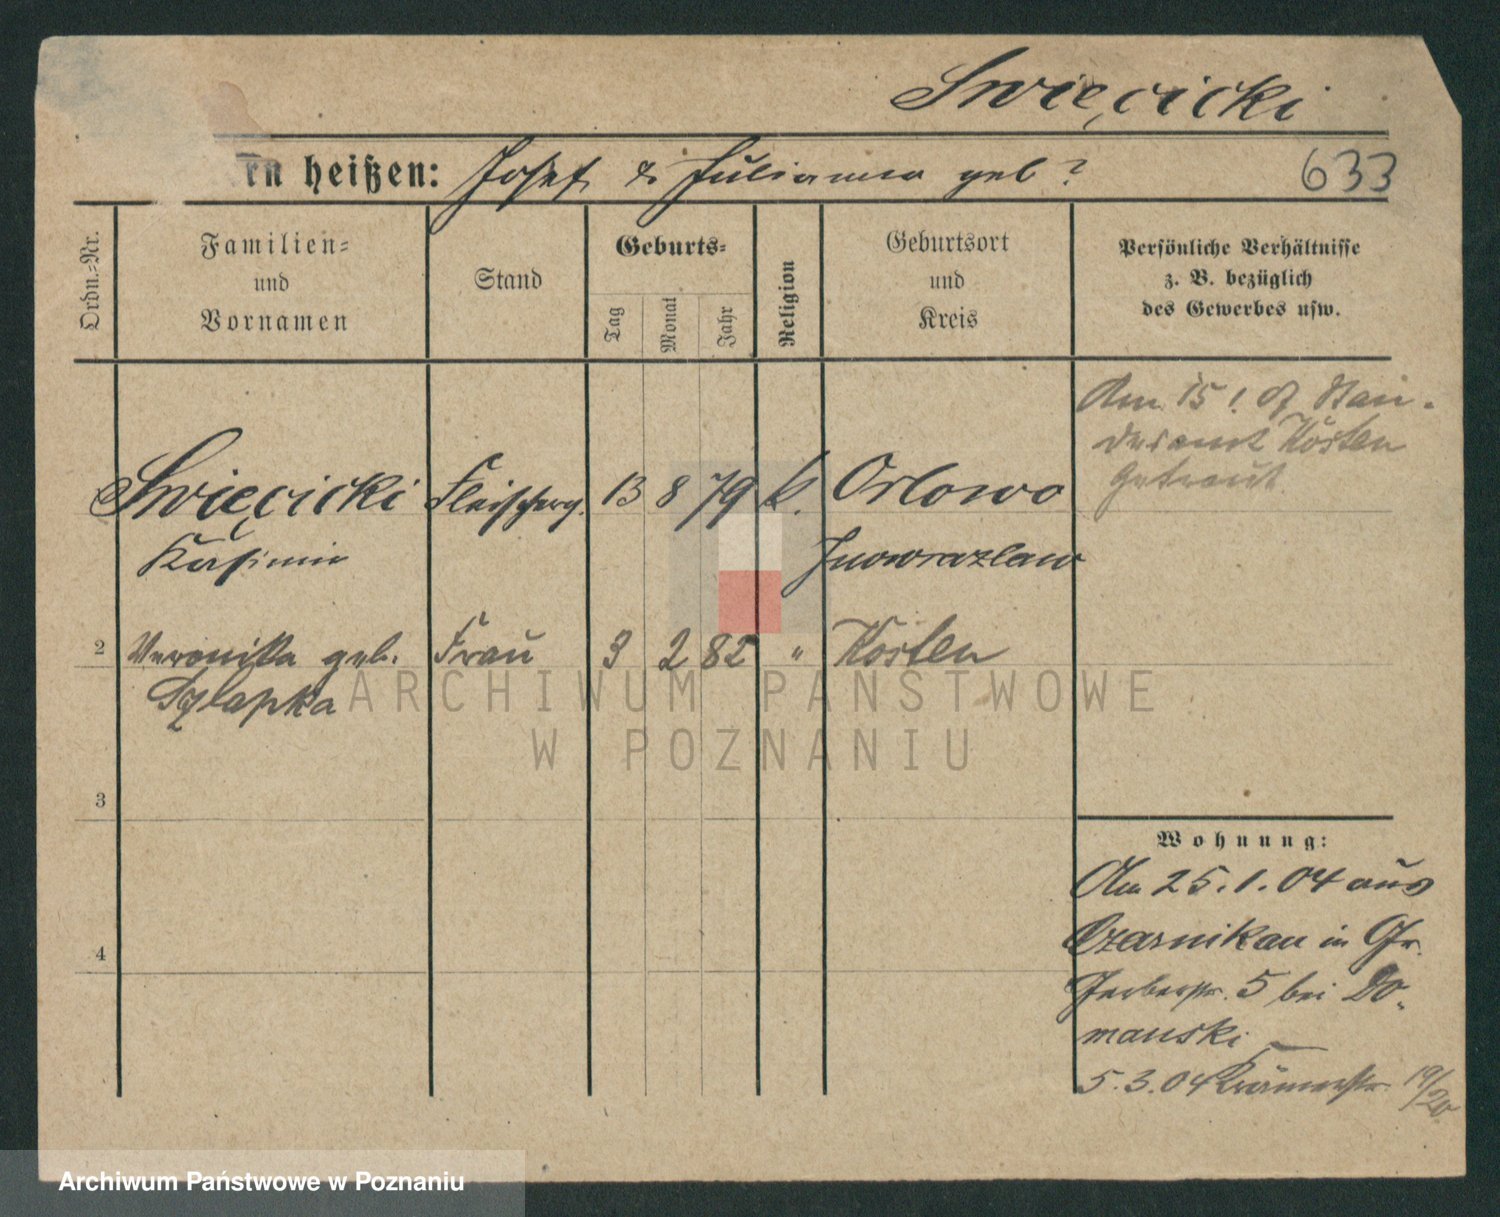 Swięcicki
rn heißen: Josef & Julianna geb?
633
Ordn.=Nr.
Familien=
und
Vornamen
Stand
Geburts=
Tag
Monat
Jahr
Religion
Geburtsort
und
Kreis
Persönliche Verhältnisse
z. B. bezüglich
des Gewerbes usw.
Am 15 1. 07 Stan-
desamt Kösten
getraut
Swięcicki Fleischerg. 13 8 79 k. Orlowo
Kasimir Inowrazlaw
2 Veronika geb. Frau 3 2 82 " Kosten
Szlapka
ARCHIWUM PAŃSTWOWE
W POZNANIU
3
Wohnung:
Am 25.1.04 aus
Czarnikau in Gr.
4
Gerberstr. 5 bei Do-
manski
5.3.04 Krämerstr. 19/20
Archiwum Państwowe w Poznaniu